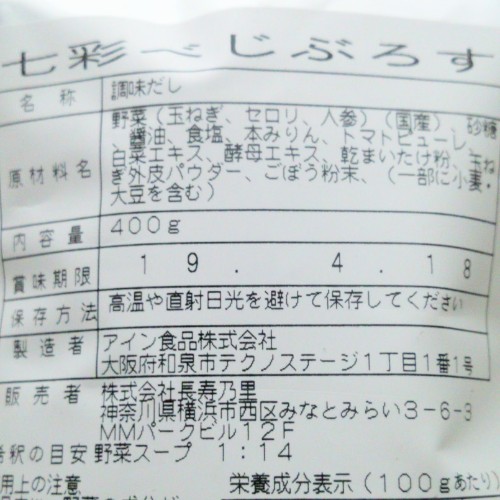 七彩べじぶろす
名称 調味だし
原材料名 野菜(玉ねぎ、セロリ、人参)(国産)、砂糖
、醤油、食塩、本みりん、トマトピューレ、
白菜エキス、酵母エキス、乾まいたけ粉、玉ね
ぎ外皮パウダー、ごぼう粉末、(一部に小麦・
大豆を含む)
内容量 400g
賞味期限 19. 4. 18
保存方法 高温や直射日光を避けて保存してください
製造者 アイン食品株式会社
大阪府和泉市テクノステージ1丁目1番1号
販売者 株式会社長寿乃里
神奈川県横浜市西区みなとみらい3-6-3
MMパークビル12F
釈の目安 野菜スープ 1:14
用上の注意 栄養成分表示(100gあたり)